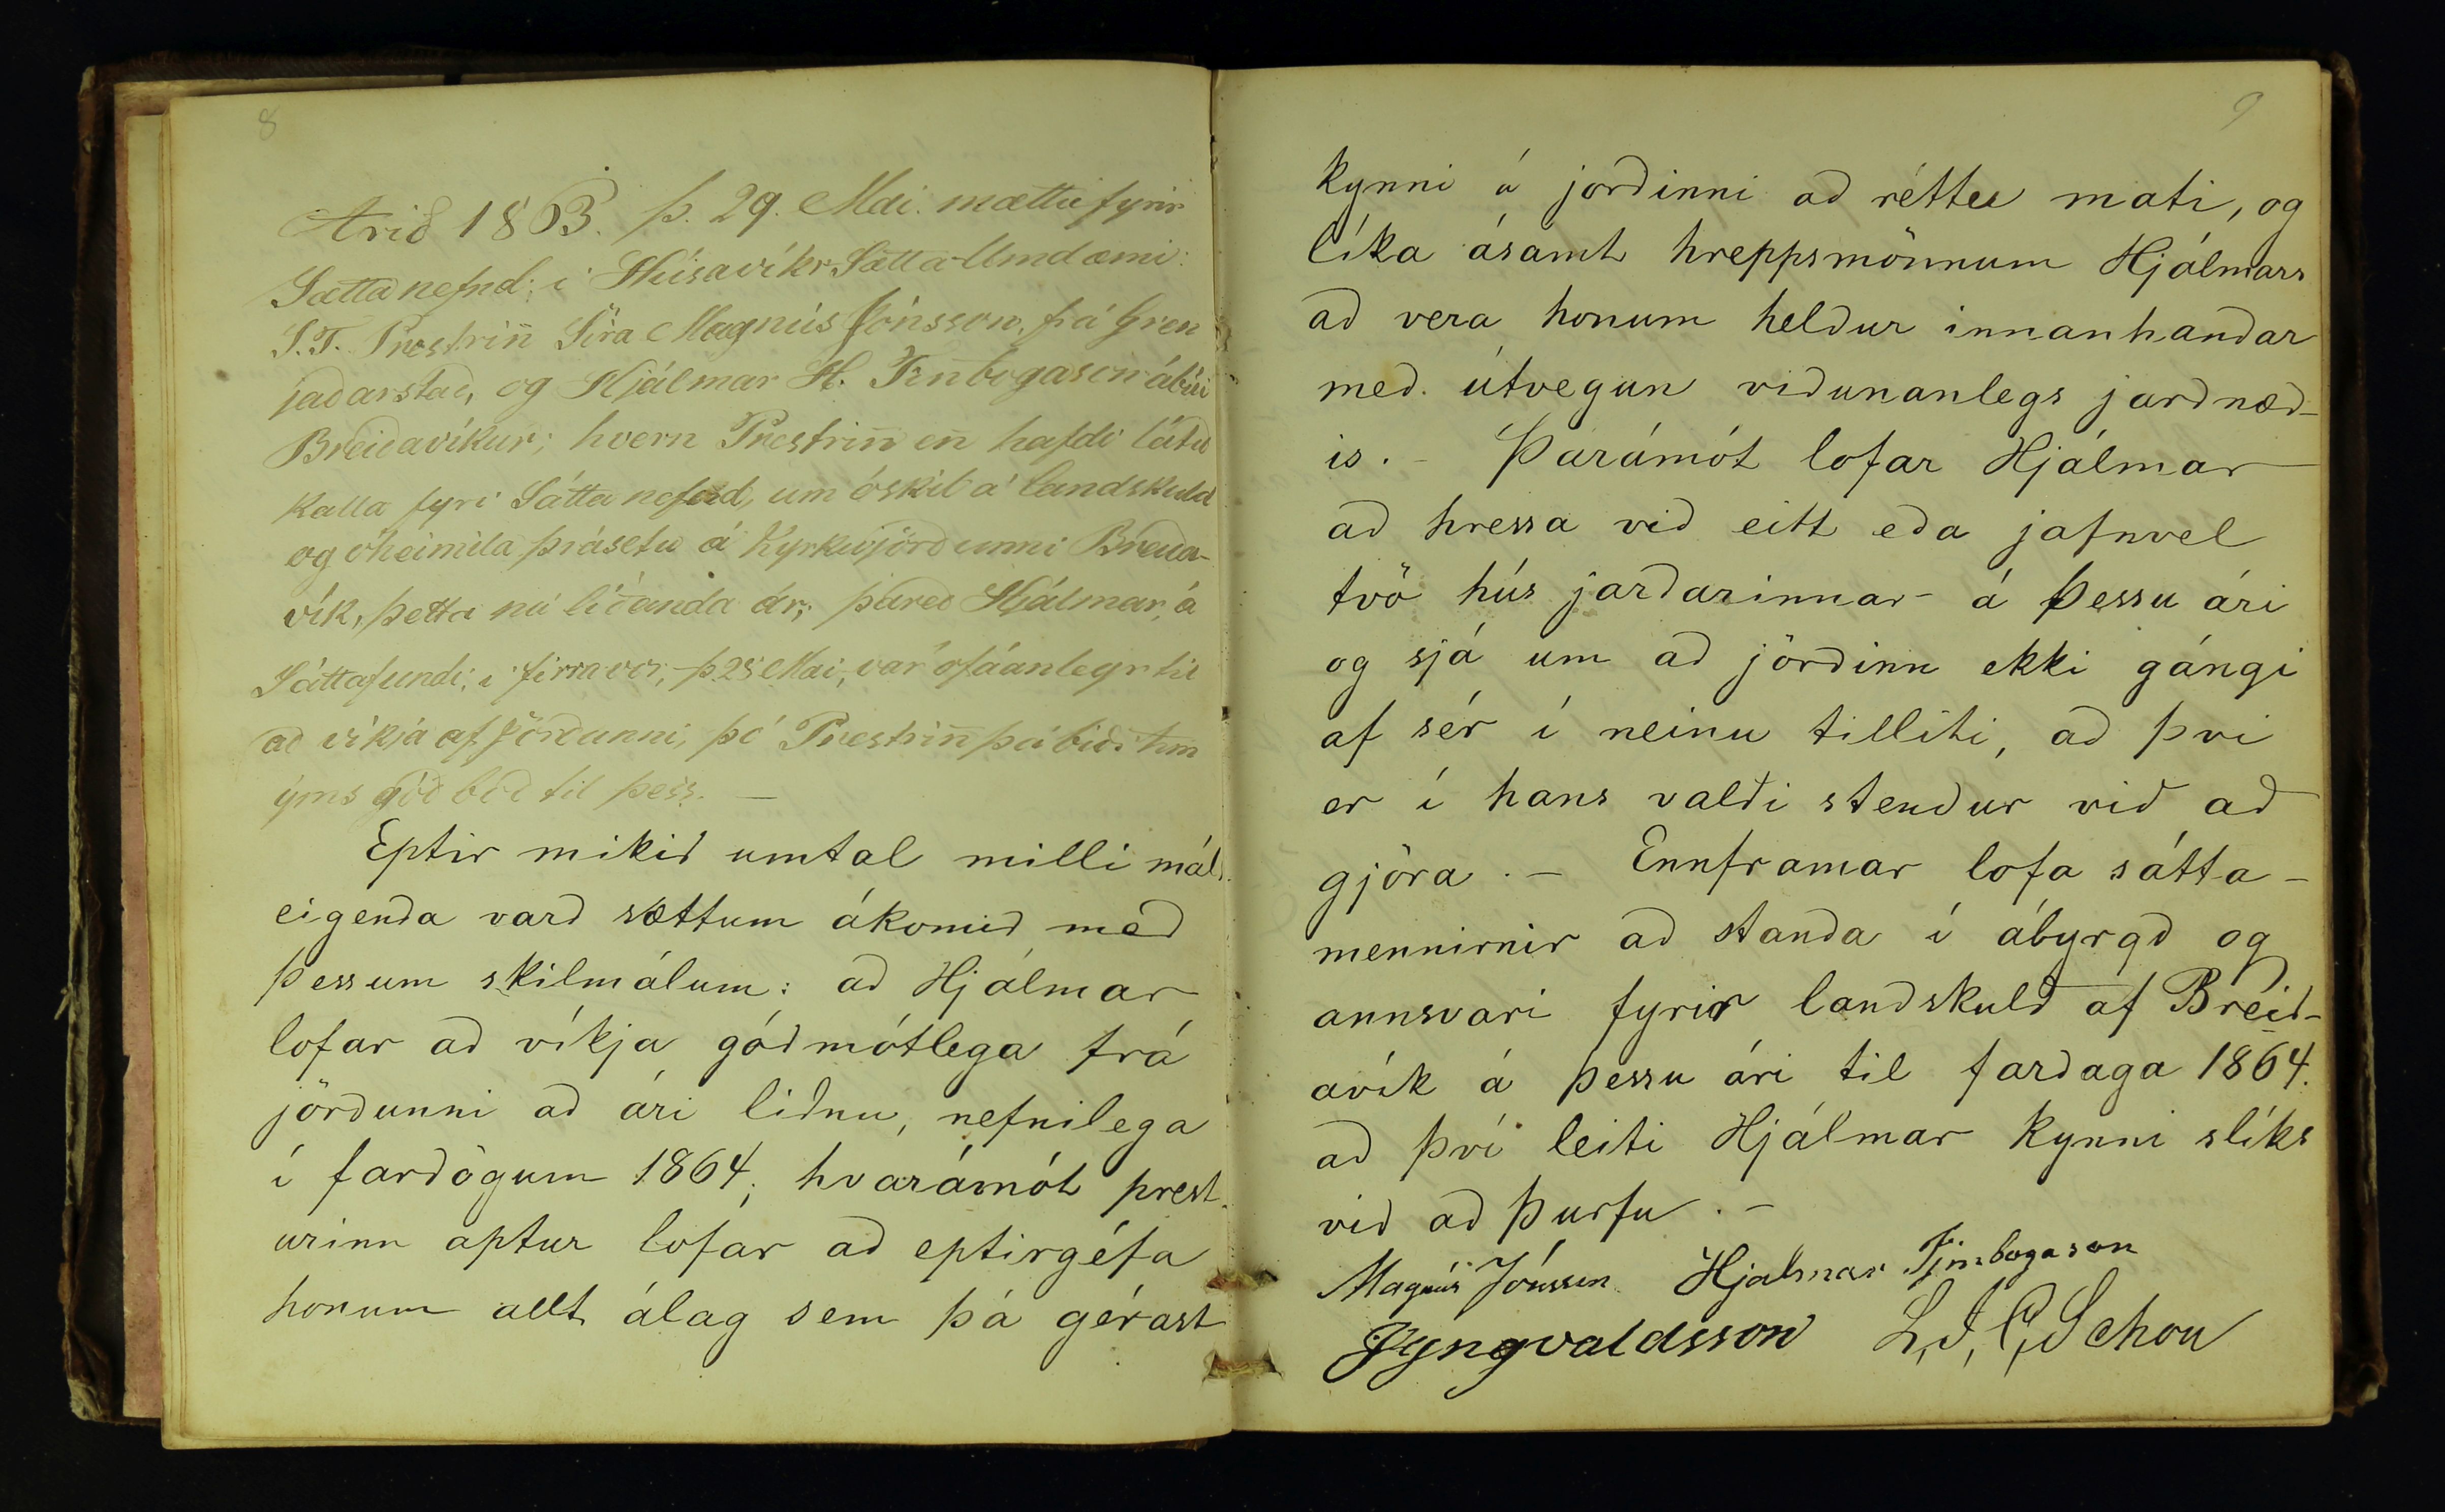 8
Arið 1863. þ. 29. Mai. mættu fyrir
Sættanefnd; i Húsavíkr Sátta-Umdæmi:
S.T. Prestrin̄ Síra Magnús Jónsson, frá Gren
jadarstad, og Hjálmar H. Finbogason ábúi
Breidavíkur; hvern Prestrin̄ en̄ hafdi látid
kalla fyri Sáttanefnd, um óskil á landskuld
og óheimila þrásetu á Kyrkiujördunni Breida-
vík, þetta nú líðanda ár; þared Hjálmar, á
Sáttafundi; i firra vor, þ 25 Mai, var ofáanlegr til
ad víkja af Jördunni, þó Prestrin̄ þá biði hm
ýms gód bod til þess. —
Eptir mikid umtal milli máls
eigenda vard sættum ákomid med
þessum skilmálum: ad Hjálmar
lofar ad víkja gódmótlega frá
jördunni ad ári lidnu, nefnilega
í fardögum 1864; hvarámót prest-
urinn aptur lofar ad eptirgéfa
honum allt álag sem þá gérast
9
kynni á jördinni ad réttu mati, og
líka ásamt hreppsmönnum Hjálmars
ad vera honum heldur innanhandar
med. útvegun vidunanlegs jardnæd-
is. - Þarámót lofar Hjálmar
ad hressa vid eitt eda jafnvel
tvö hús jardarinnar á þessu ári
og sjá um ad jördinn ekki gángi
af sér í neinu tilliti, ad því
er í hans valdi stendur vid ad
gjöra. — Ennframar lofa sátta-
mennirnir ad standa í ábyrgd og
annsvari fyrir landskuld af Breid-
avík á þessu ári til fardaga 1864.
ad því leiti Hjálmar kynni slíks
vid ad þurfu. -
Magnús Jónsson Hjalmar Finbogason
JIyngvaldsson L, J, C, Schou